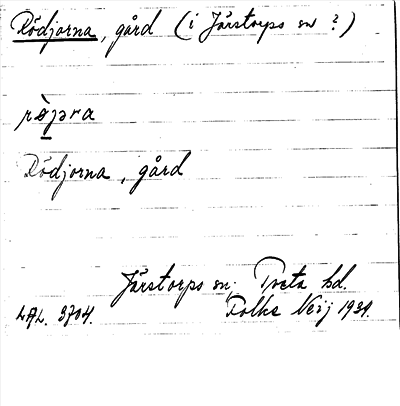 Rödjorna, gård (i Järstorps sn ?)
rø̀jəra
Rödjorna, gård
Järstorps sn; Tveta hd.
LAL. 3704. Folke Neij 1931.